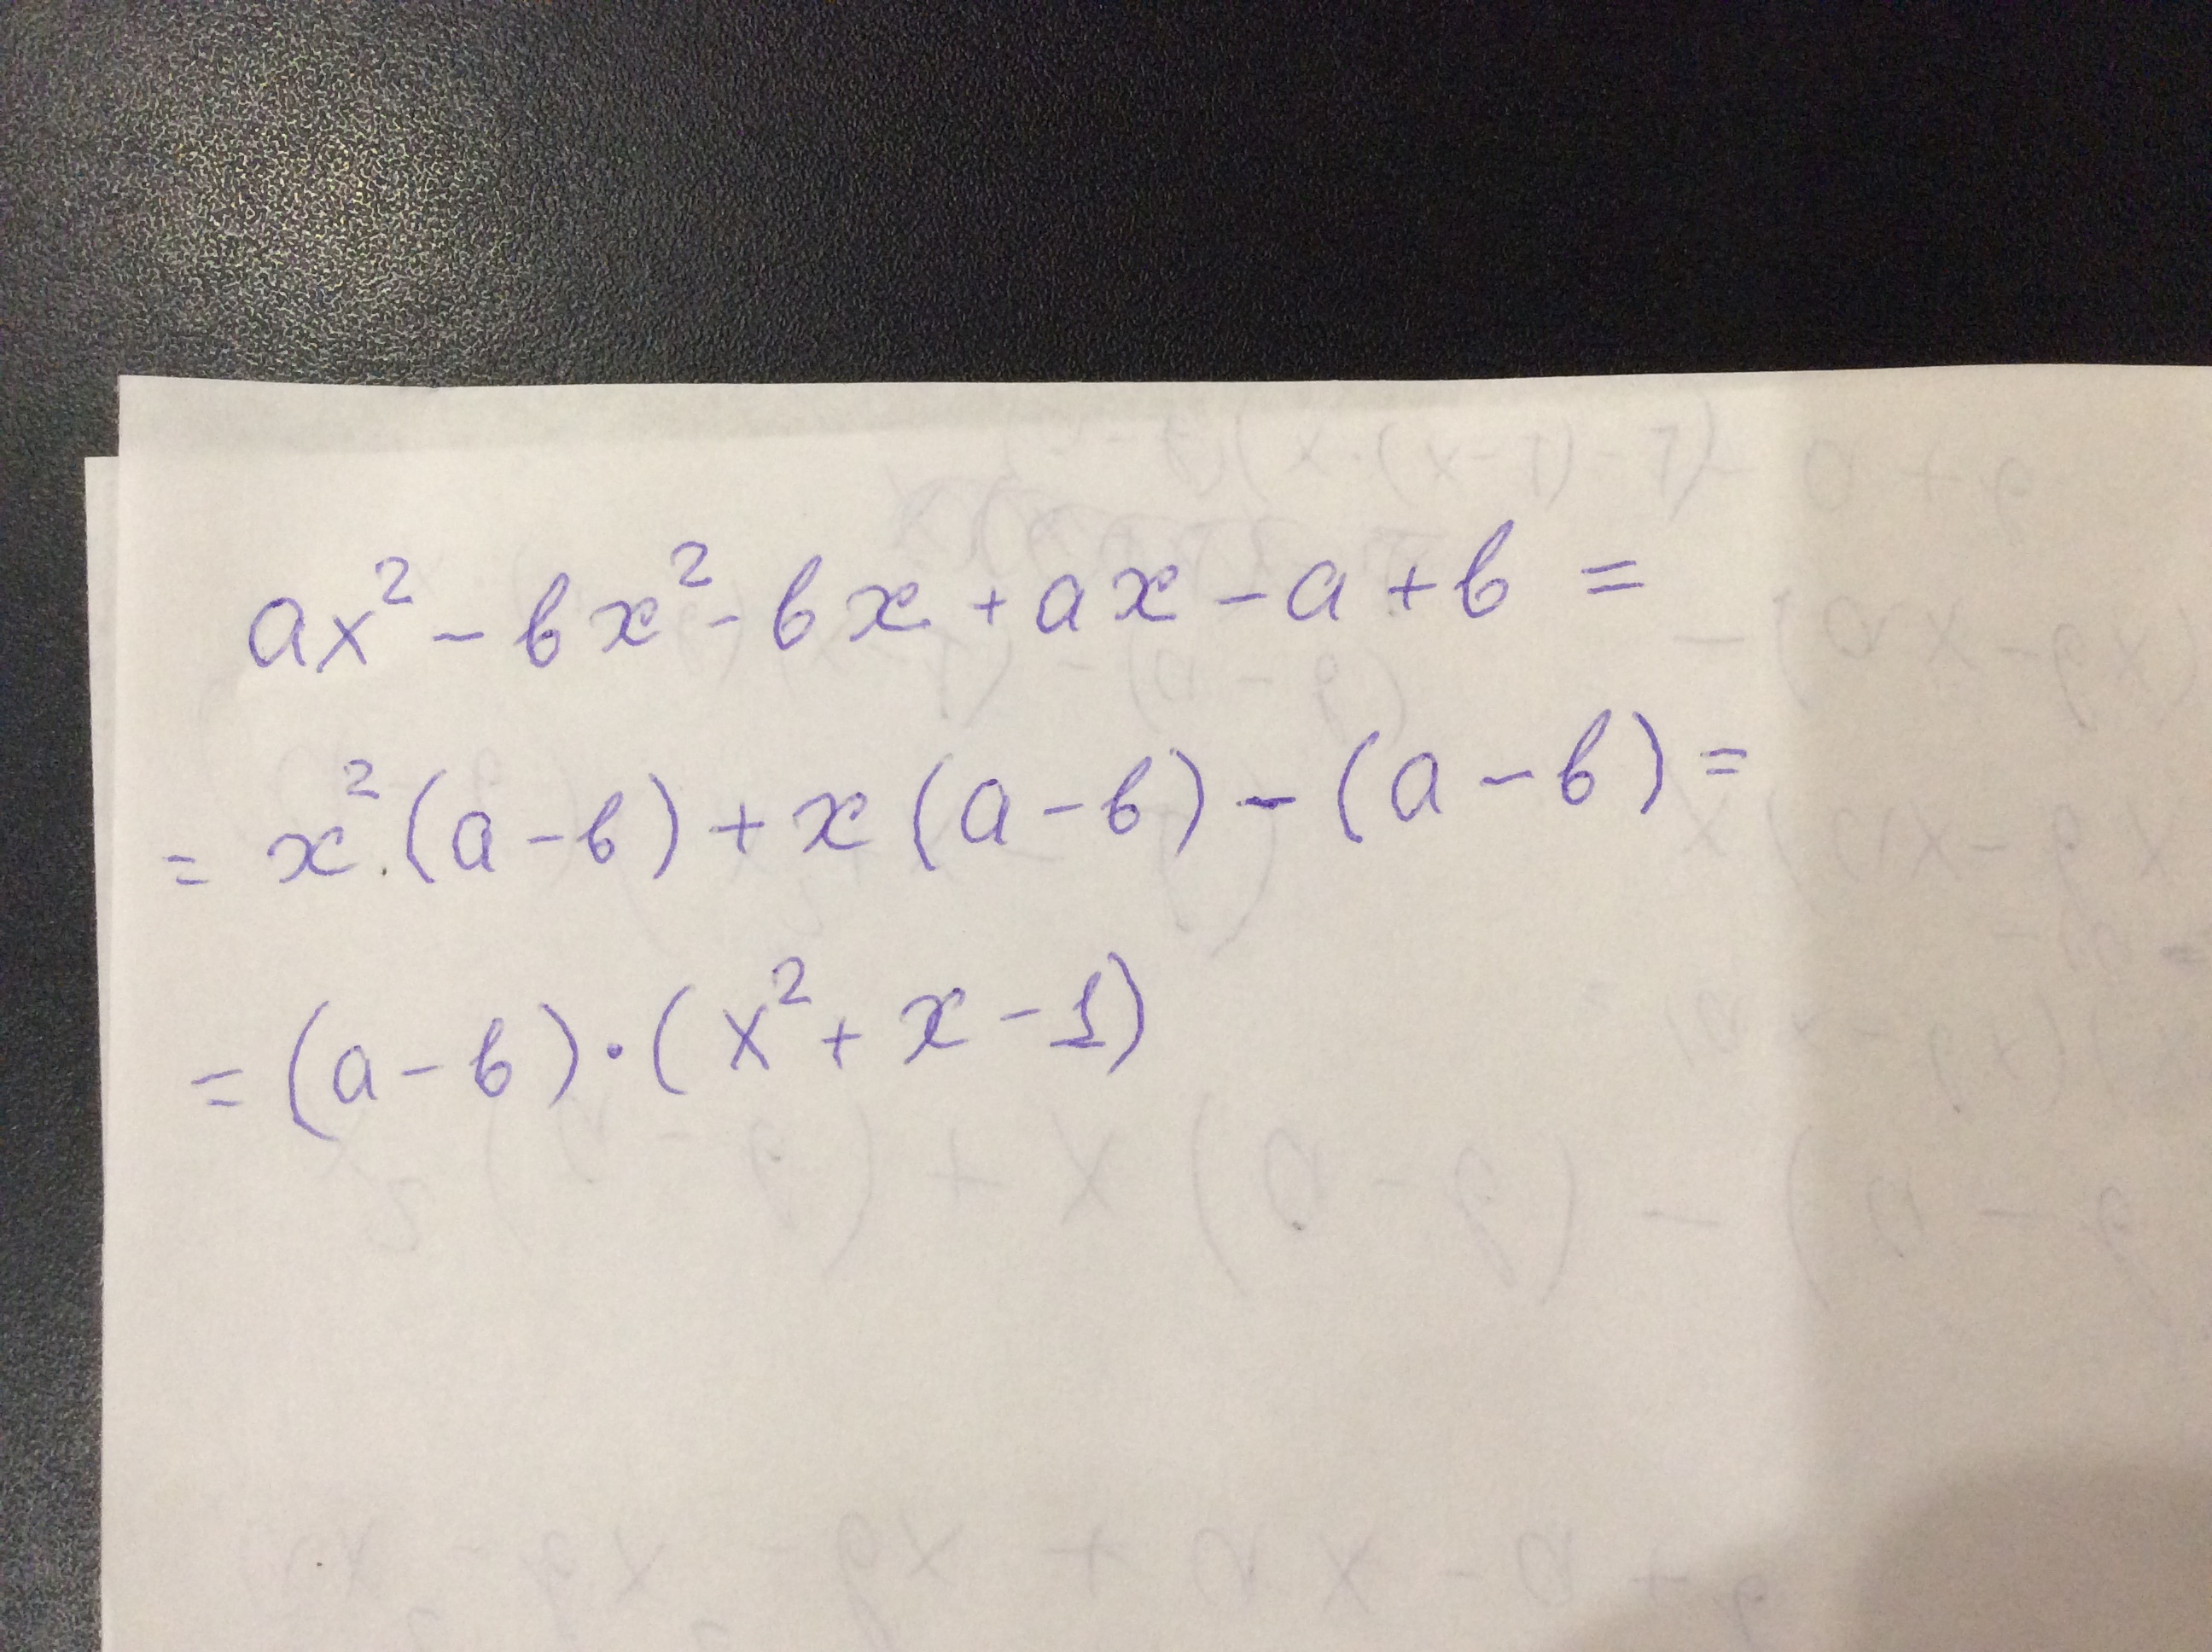 ax² - bx² - bx + ax - a + b =
= x² · (a - b) + x (a - b) - (a - b) =
= (a - b) · (x² + x - 1)